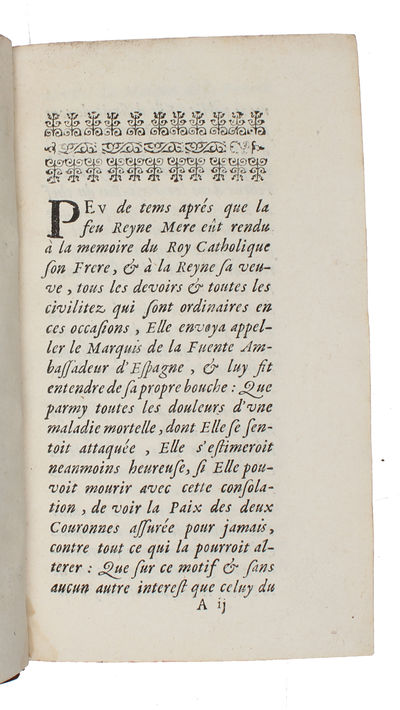 PEV de tems aprés que la
feu Reyne Mere eût rendu
à la memoire du Roy Catholique
ſon Frere, & à la Reyne ſa veu-
ve, tous les devoirs & toutes les
civilitez qui ſont ordinaires en
ces occaſions, Elle envoya appel-
ler le Marquis de la Fuente Am-
baſſadeur d'Eſpagne, & luy fit
entendre de ſa propre bouche: Que
parmy toutes les douleurs d'vne
maladie mortelle, dont Elle ſe ſen-
toit attaquée, Elle s'eſtimeroit
neanmoins heureuſe, ſi Elle pou-
voit mourir avec cette conſola-
tion, de voir la Paix des deux
Couronnes aſſurée pour jamais,
contre tout ce qui la pourroit al-
terer: Que ſur ce motif & ſans
aucun autre intereſt que celuy du
A ij